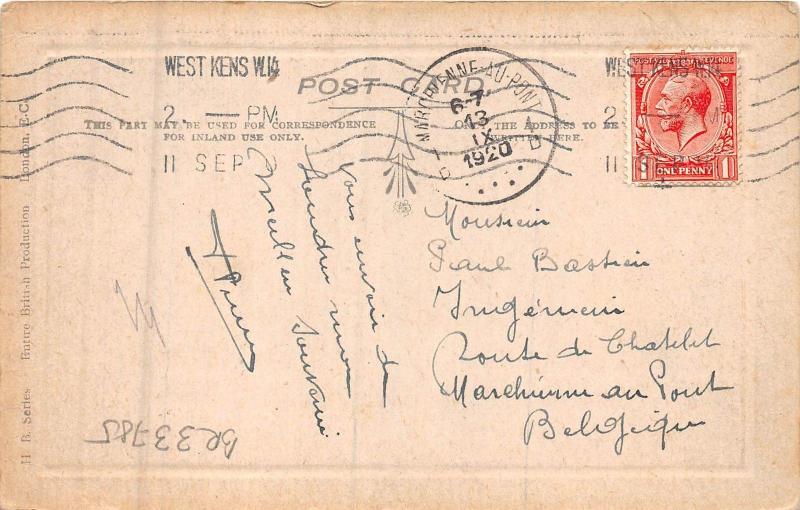 WEST KENS W.14
2. — PM
11 SEP
POST CARD
THIS PART MAY BE USED FOR CORRESPONDENCE
FOR INLAND USE ONLY.
ONLY THE ADDRESS TO BE
WRITTEN HERE.
MARCHIENNE-AU-PONT
6-7
13
IX
1920
1 B
1 B
WEST KENS W.14
2
PM
11 SEP
POSTAGE REVENUE
ONE PENNY
1
vous envoie de
Londres mon
Meilleur Souvenir
Monsieur
Paul Bastien
Ingénieur
Route de Chatelet
Marchienne au Pont
Belgique
BR33785
H B. Series Entire British Production London, E.C.